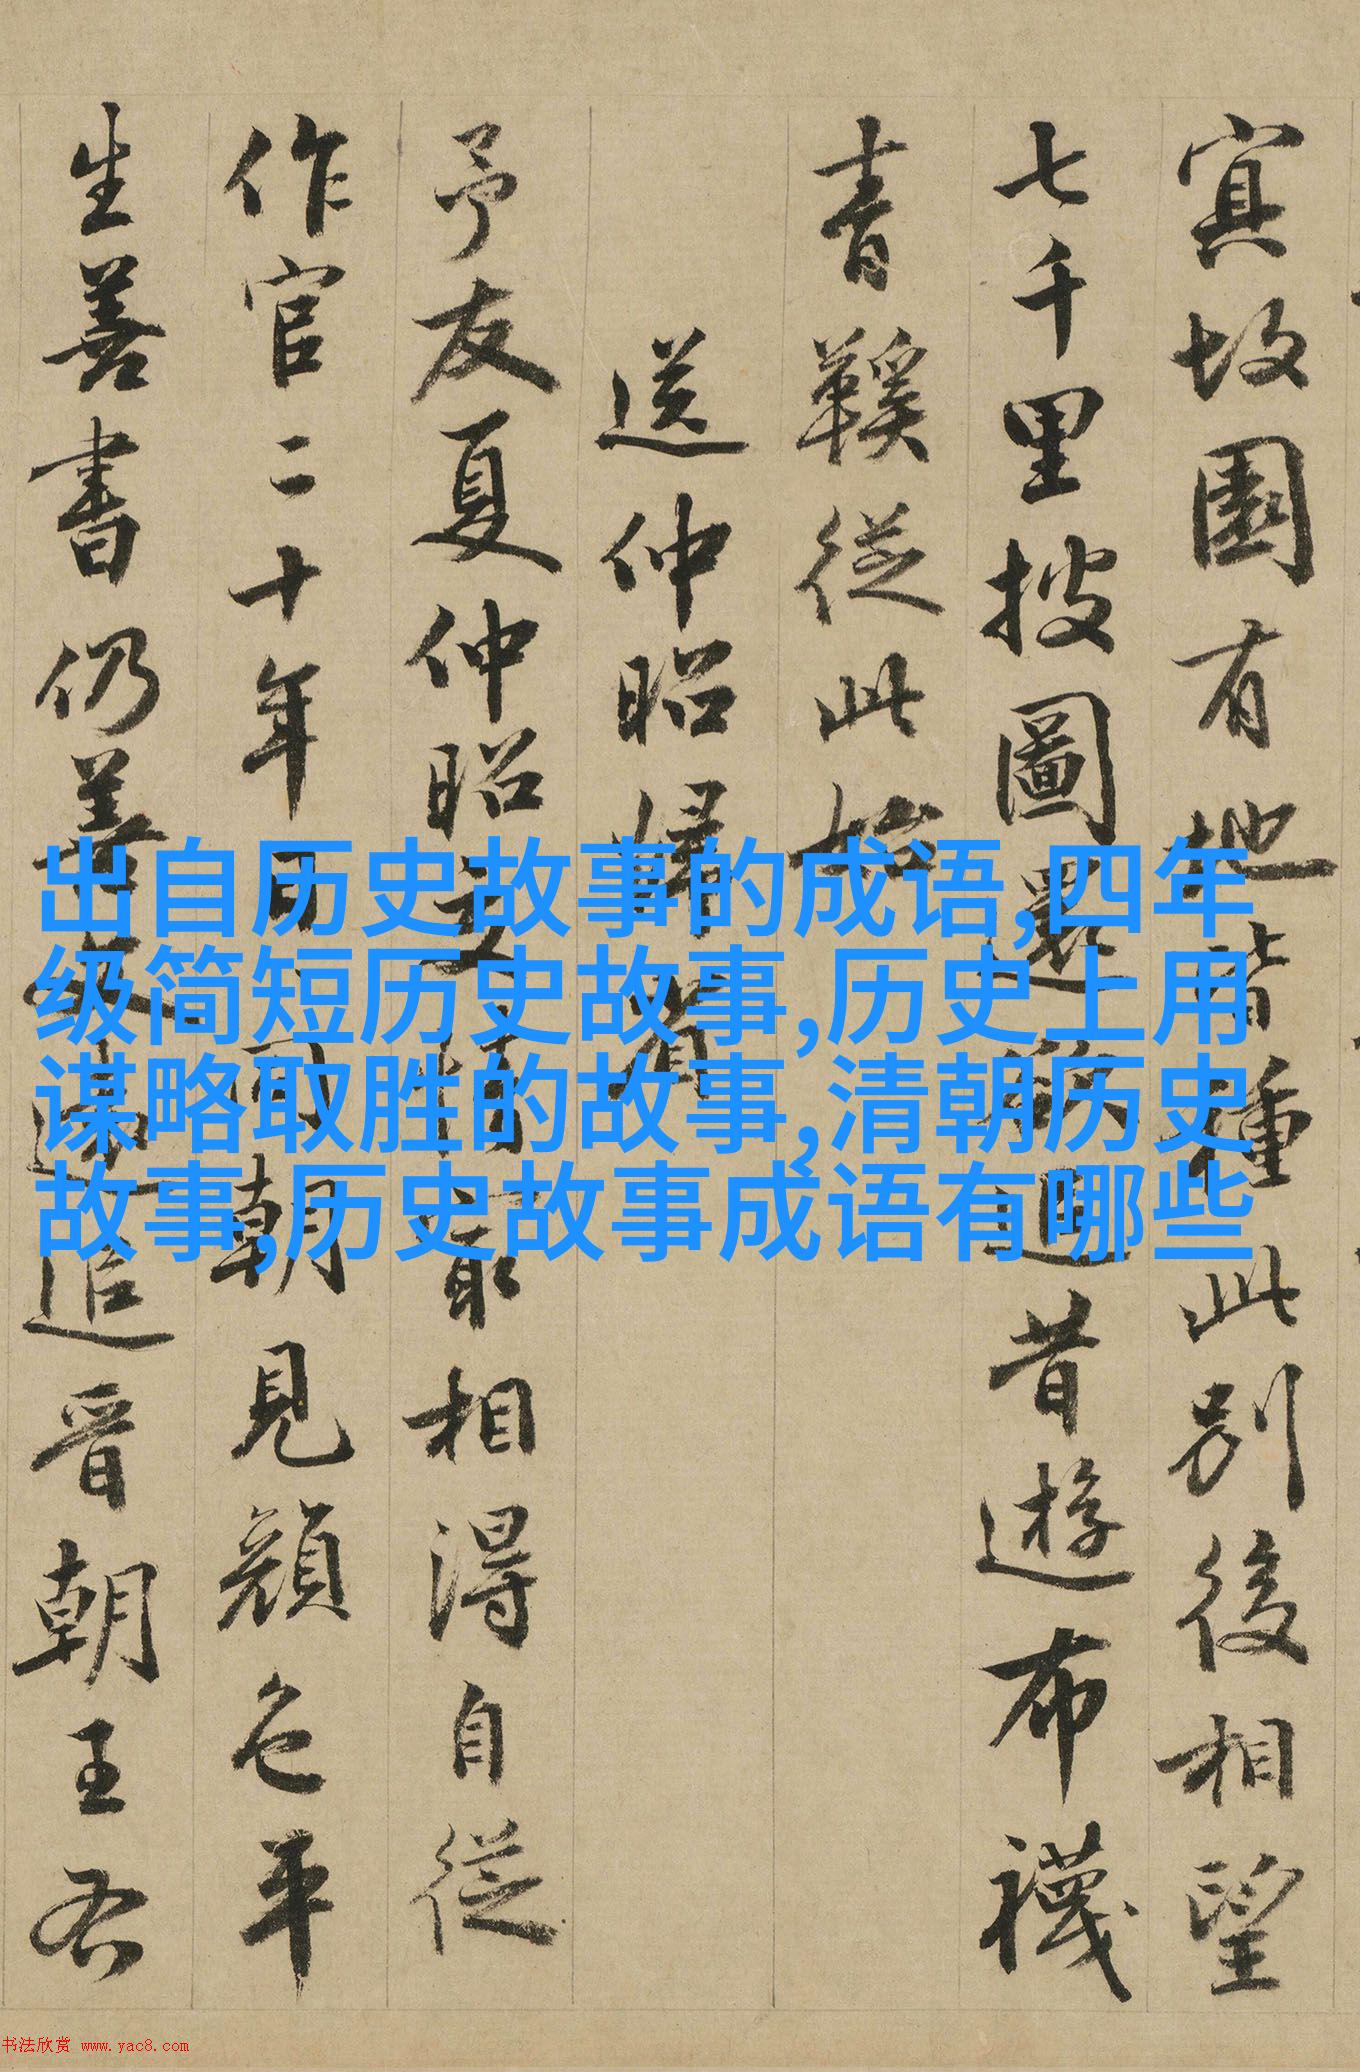 寘故園有地皆種此別後相望
七千里披圖還欲迴昔遊布襪
青鞵從此始
送仲昭歸省
予友夏仲昭交情最相得自從
作官二十年日日朝見顏色平
生善書仍善追晉朝王右
出自历史故事的成语,四年
级简短历史故事,历史上用
谋略取胜的故事,清朝历史
故事,历史故事成语有哪些
书法欣赏 www.yac8.com